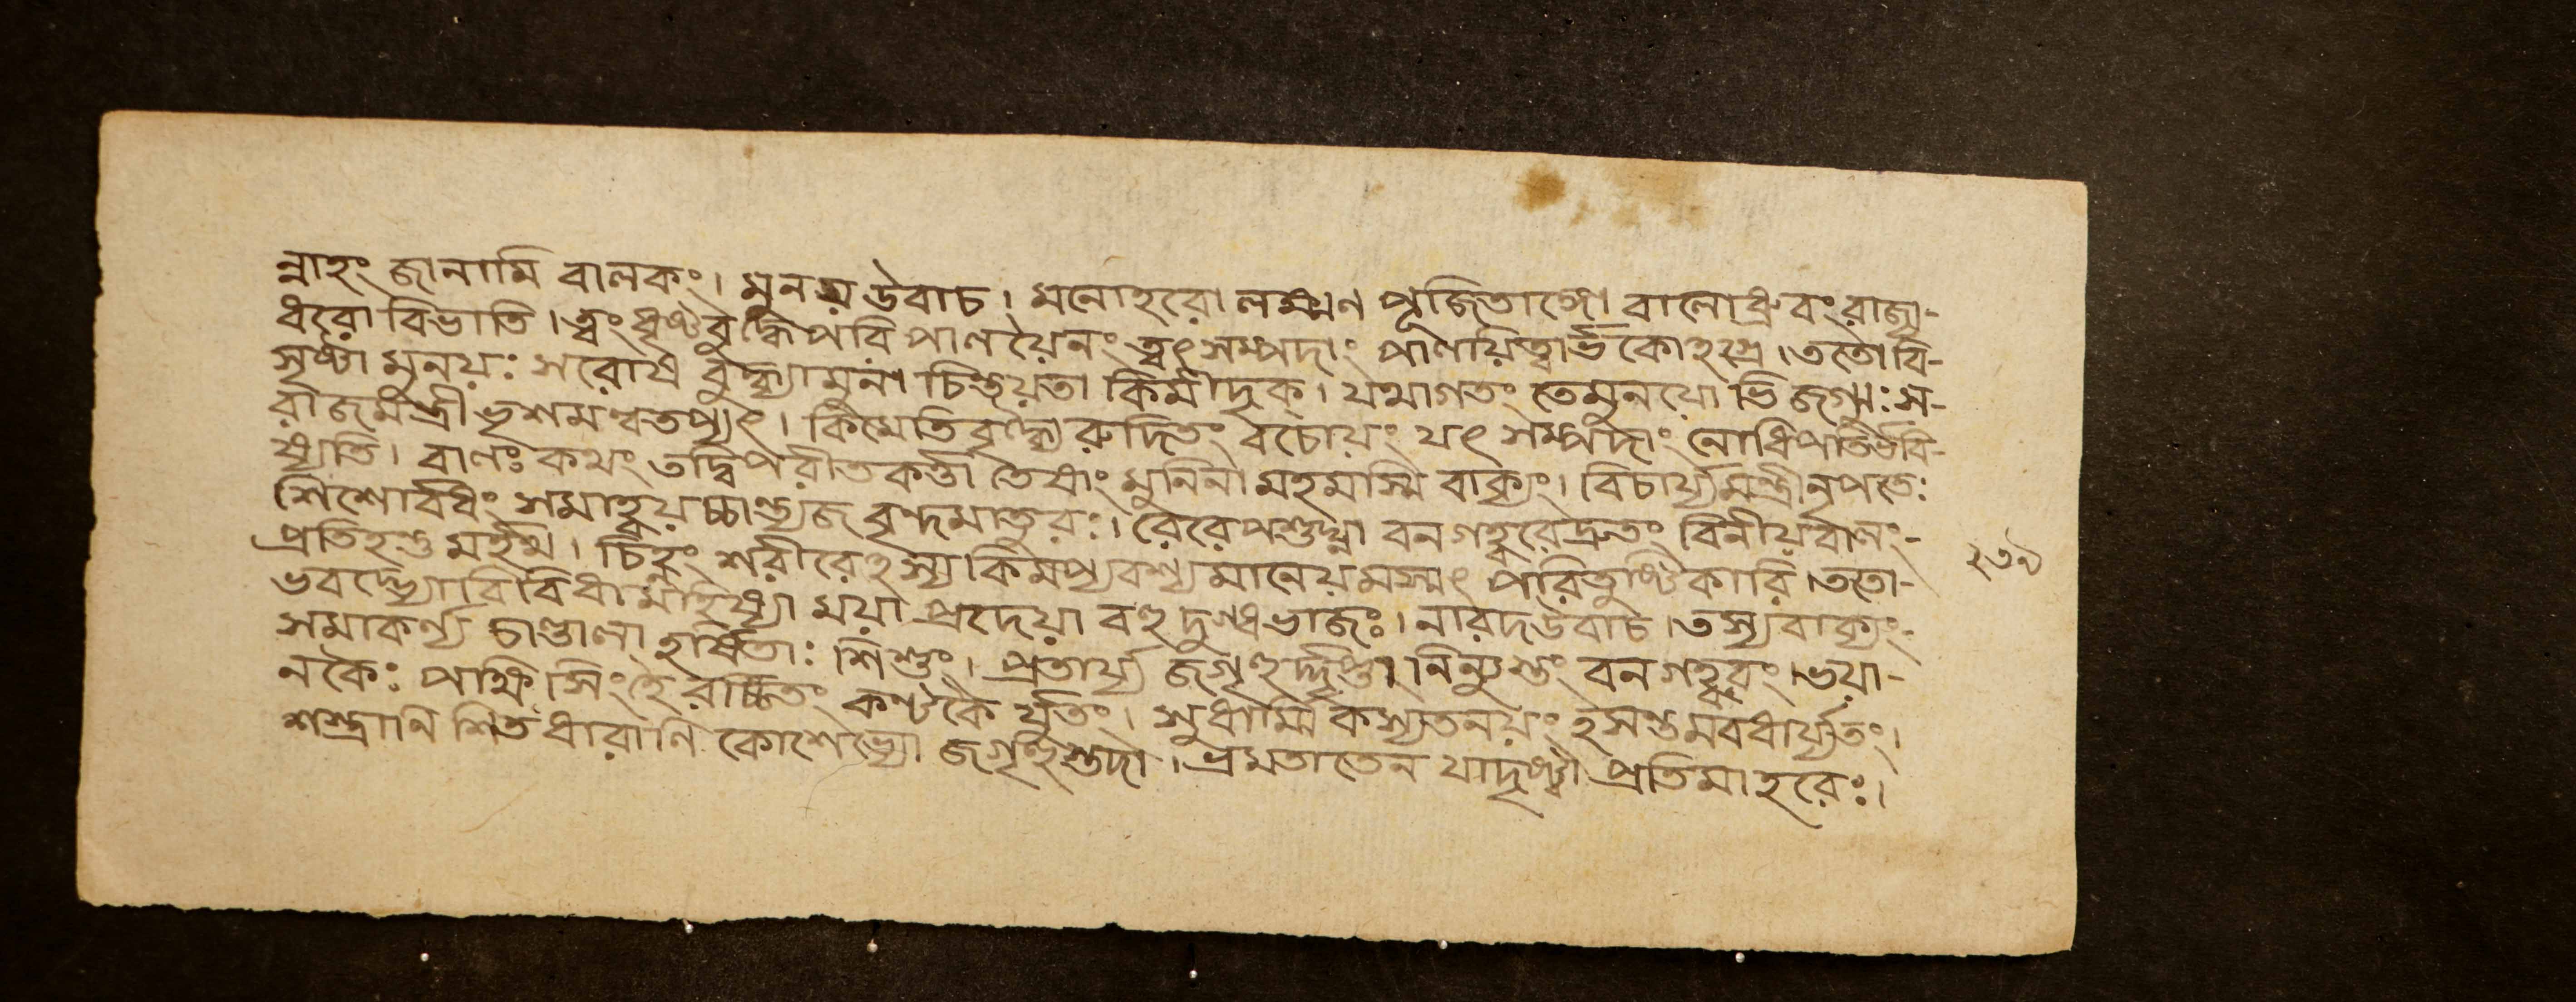 ন্নাহং জানামি বালকং। মুনয় উবাচ। মনোহরো লক্ষ্মণ পূজিতাঙ্গো বালোধ্রুবং রাজ্য-
ধরো বিভাতি। ত্বং ধৃষ্টবুদ্ধে পরি পালয়ৈনং ত্বৎ সম্পদাং পালয়িত্বার্ভকোহগ্রে। ততো বি-
সৃষ্টা মুনয়ঃ সরোষ বুদ্ধ্যামুনা চিন্তয়তা কিমীদৃক্। যথাগতং তেমুনয়ো ভি জগ্মুঃ স-
রাজমন্ত্রী ভৃশমন্বতপ্যৎ। কিমেতি বৃদ্ধৈ রুদিতং বচোয়ং যৎ সম্পদাং নোধিপতির্ভবি-
ষ্যতি। বালঃ কথং তদ্বিপরীতকর্ত্তা তৈষাং মুনিনামহমস্মি বাক্যং। বিচার্য্যমন্ত্রীনৃপতেঃ
শিশোর্বধং সমাহ্বয়চ্চান্ত্যজ বৃন্দমাতুরঃ। রেরে পশুঘ্না বনগহ্বরেদ্রুতং বিনীয়বালং-
প্রতিহন্তু মর্হথ। চিহ্নং শরীরেহস্য কিমপ্যবশ্যমানেয়মস্মৎ পরিতুষ্টিকারি। ততো-
ভবদ্ভ্যো বিবিধামহিষ্যা ময়া প্রদেয়া বহু দুগ্ধভাজঃ। নারদউবাচ। তস্যবাক্যং-
সমাকর্ণ্য চাণ্ডালা হর্ষিতাঃ শিশুং। প্রতার্য্য জগৃহুর্দ্দৃপ্তা নিন্যুস্তং বন গহ্বরং। ভয়া-
নকৈঃ পক্ষি সিংহৈ রচ্চিতং কণ্টকৈ র্যুতং। সুধার্ম্মিকস্যতনয়ং হসন্তমবধার্য্যতং।
শস্ত্রানি শিতধারাণি কোশেভ্যো জগৃহুস্তদা। ভ্রমতাতেন যাদৃষ্টা প্রতিমা হরেঃ।
২৩৯